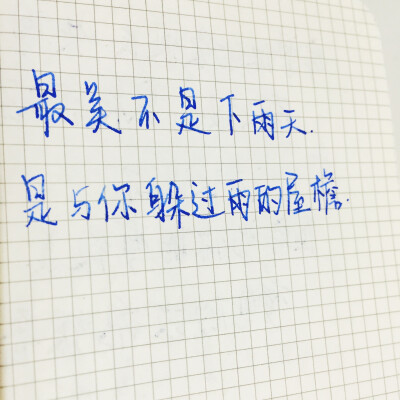 最美不是下雨天.
是与你躲过雨的屋檐.